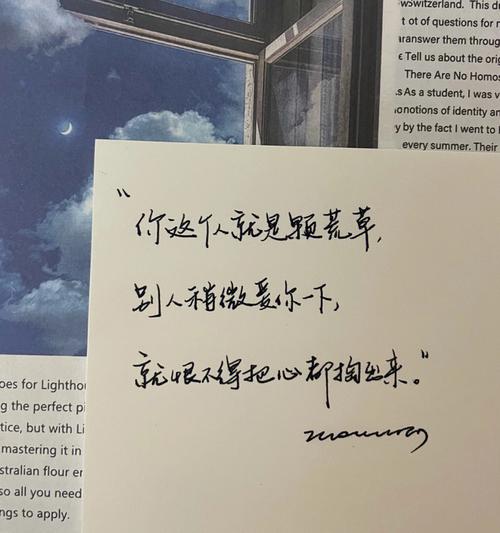 wswitzerland. This d
t ot of questions for
answer them throug
Tell us about the orig
There Are No Homos
As a student, I was v
notions of identity an
y by the fact I went to
every summer. Their
"你这个人就是颗荒草,
别人稍微爱你一下,
就恨不得把心都掏出来。"
oes for Lighthou
g the perfect pi
tice, but with Li
mastering it in
stralian flour en
so all you need
ngs to apply.